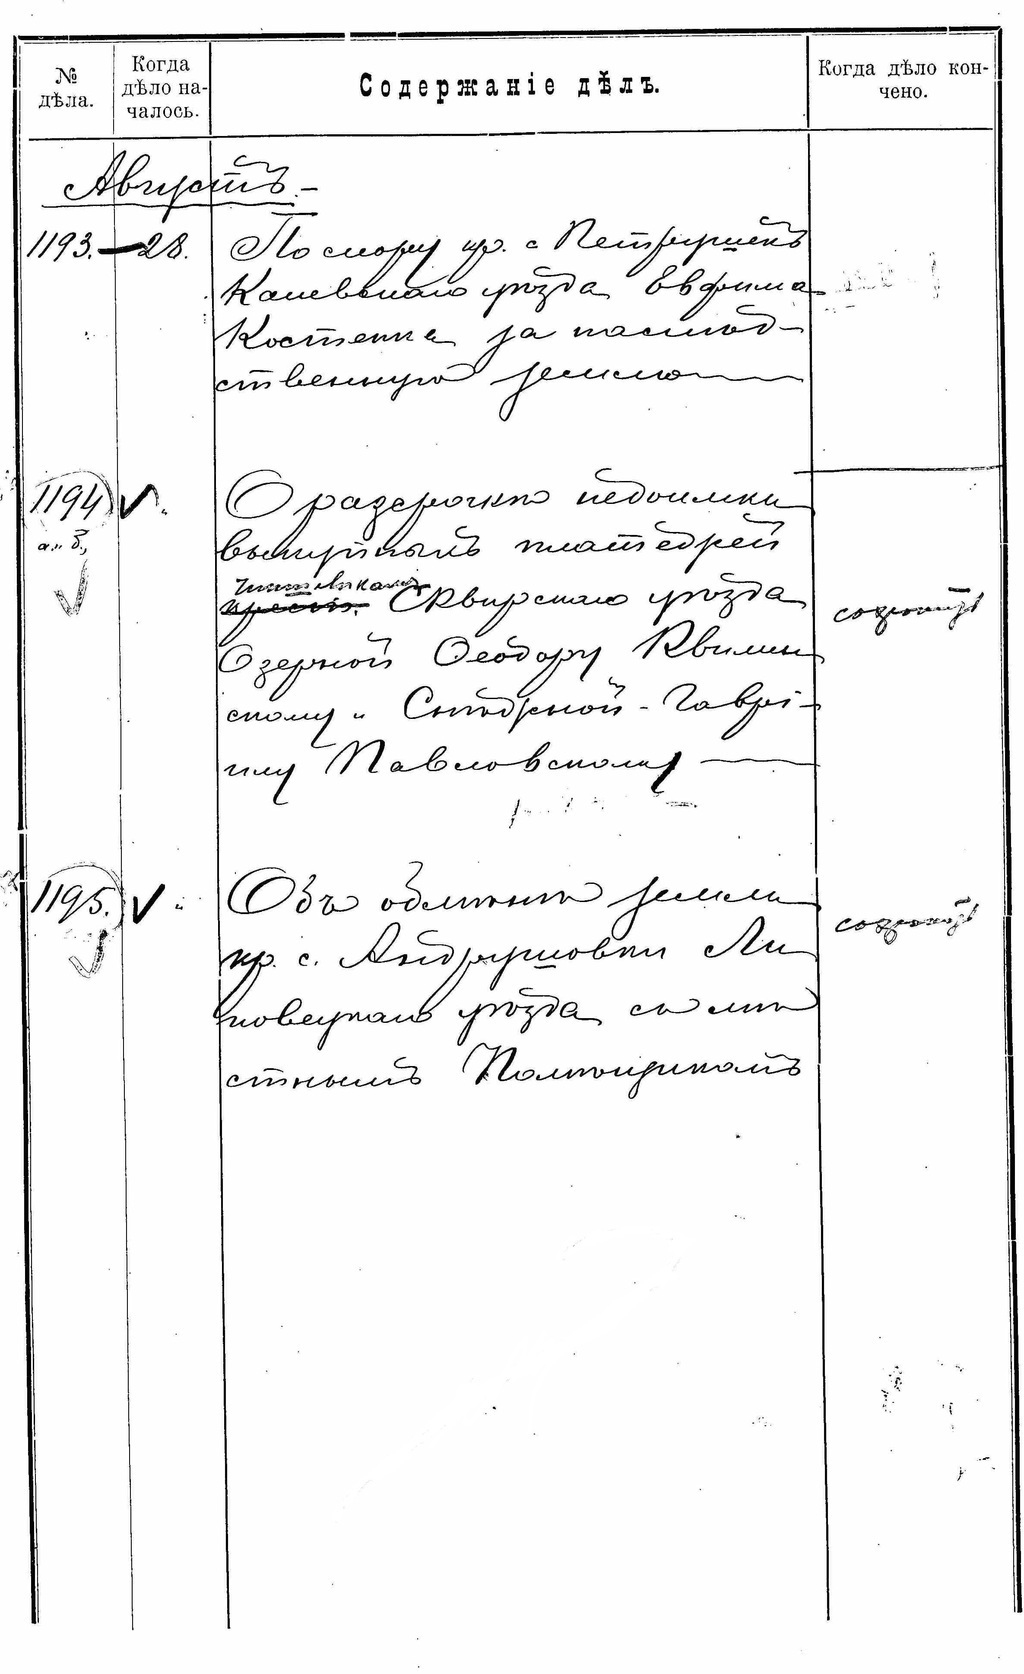 № дѣла.
Когда дѣло на-
чалось.
Содержаніе дѣлъ.
Когда дѣло кон-
чено.
Августъ.-
1193.—28. По спору кр. с Петрушекъ
Каневскаго уѣзда Евфима
Костенка за наслѣд-
ственную землю
1194 О разсрочкѣ недоимки
выкупныхъ платежей
чиншевикамъ
кресть. Сквирскаго уѣзда
Озерной Ѳеодору Квилин
скому и Снѣжной - Гаврі-
илу Павловскому
1195. Объ обмѣнѣ земли
кр. с. Андрушовки Ли
повецкаго уѣзда съ мѣ
стнымъ Помѣщикомъ